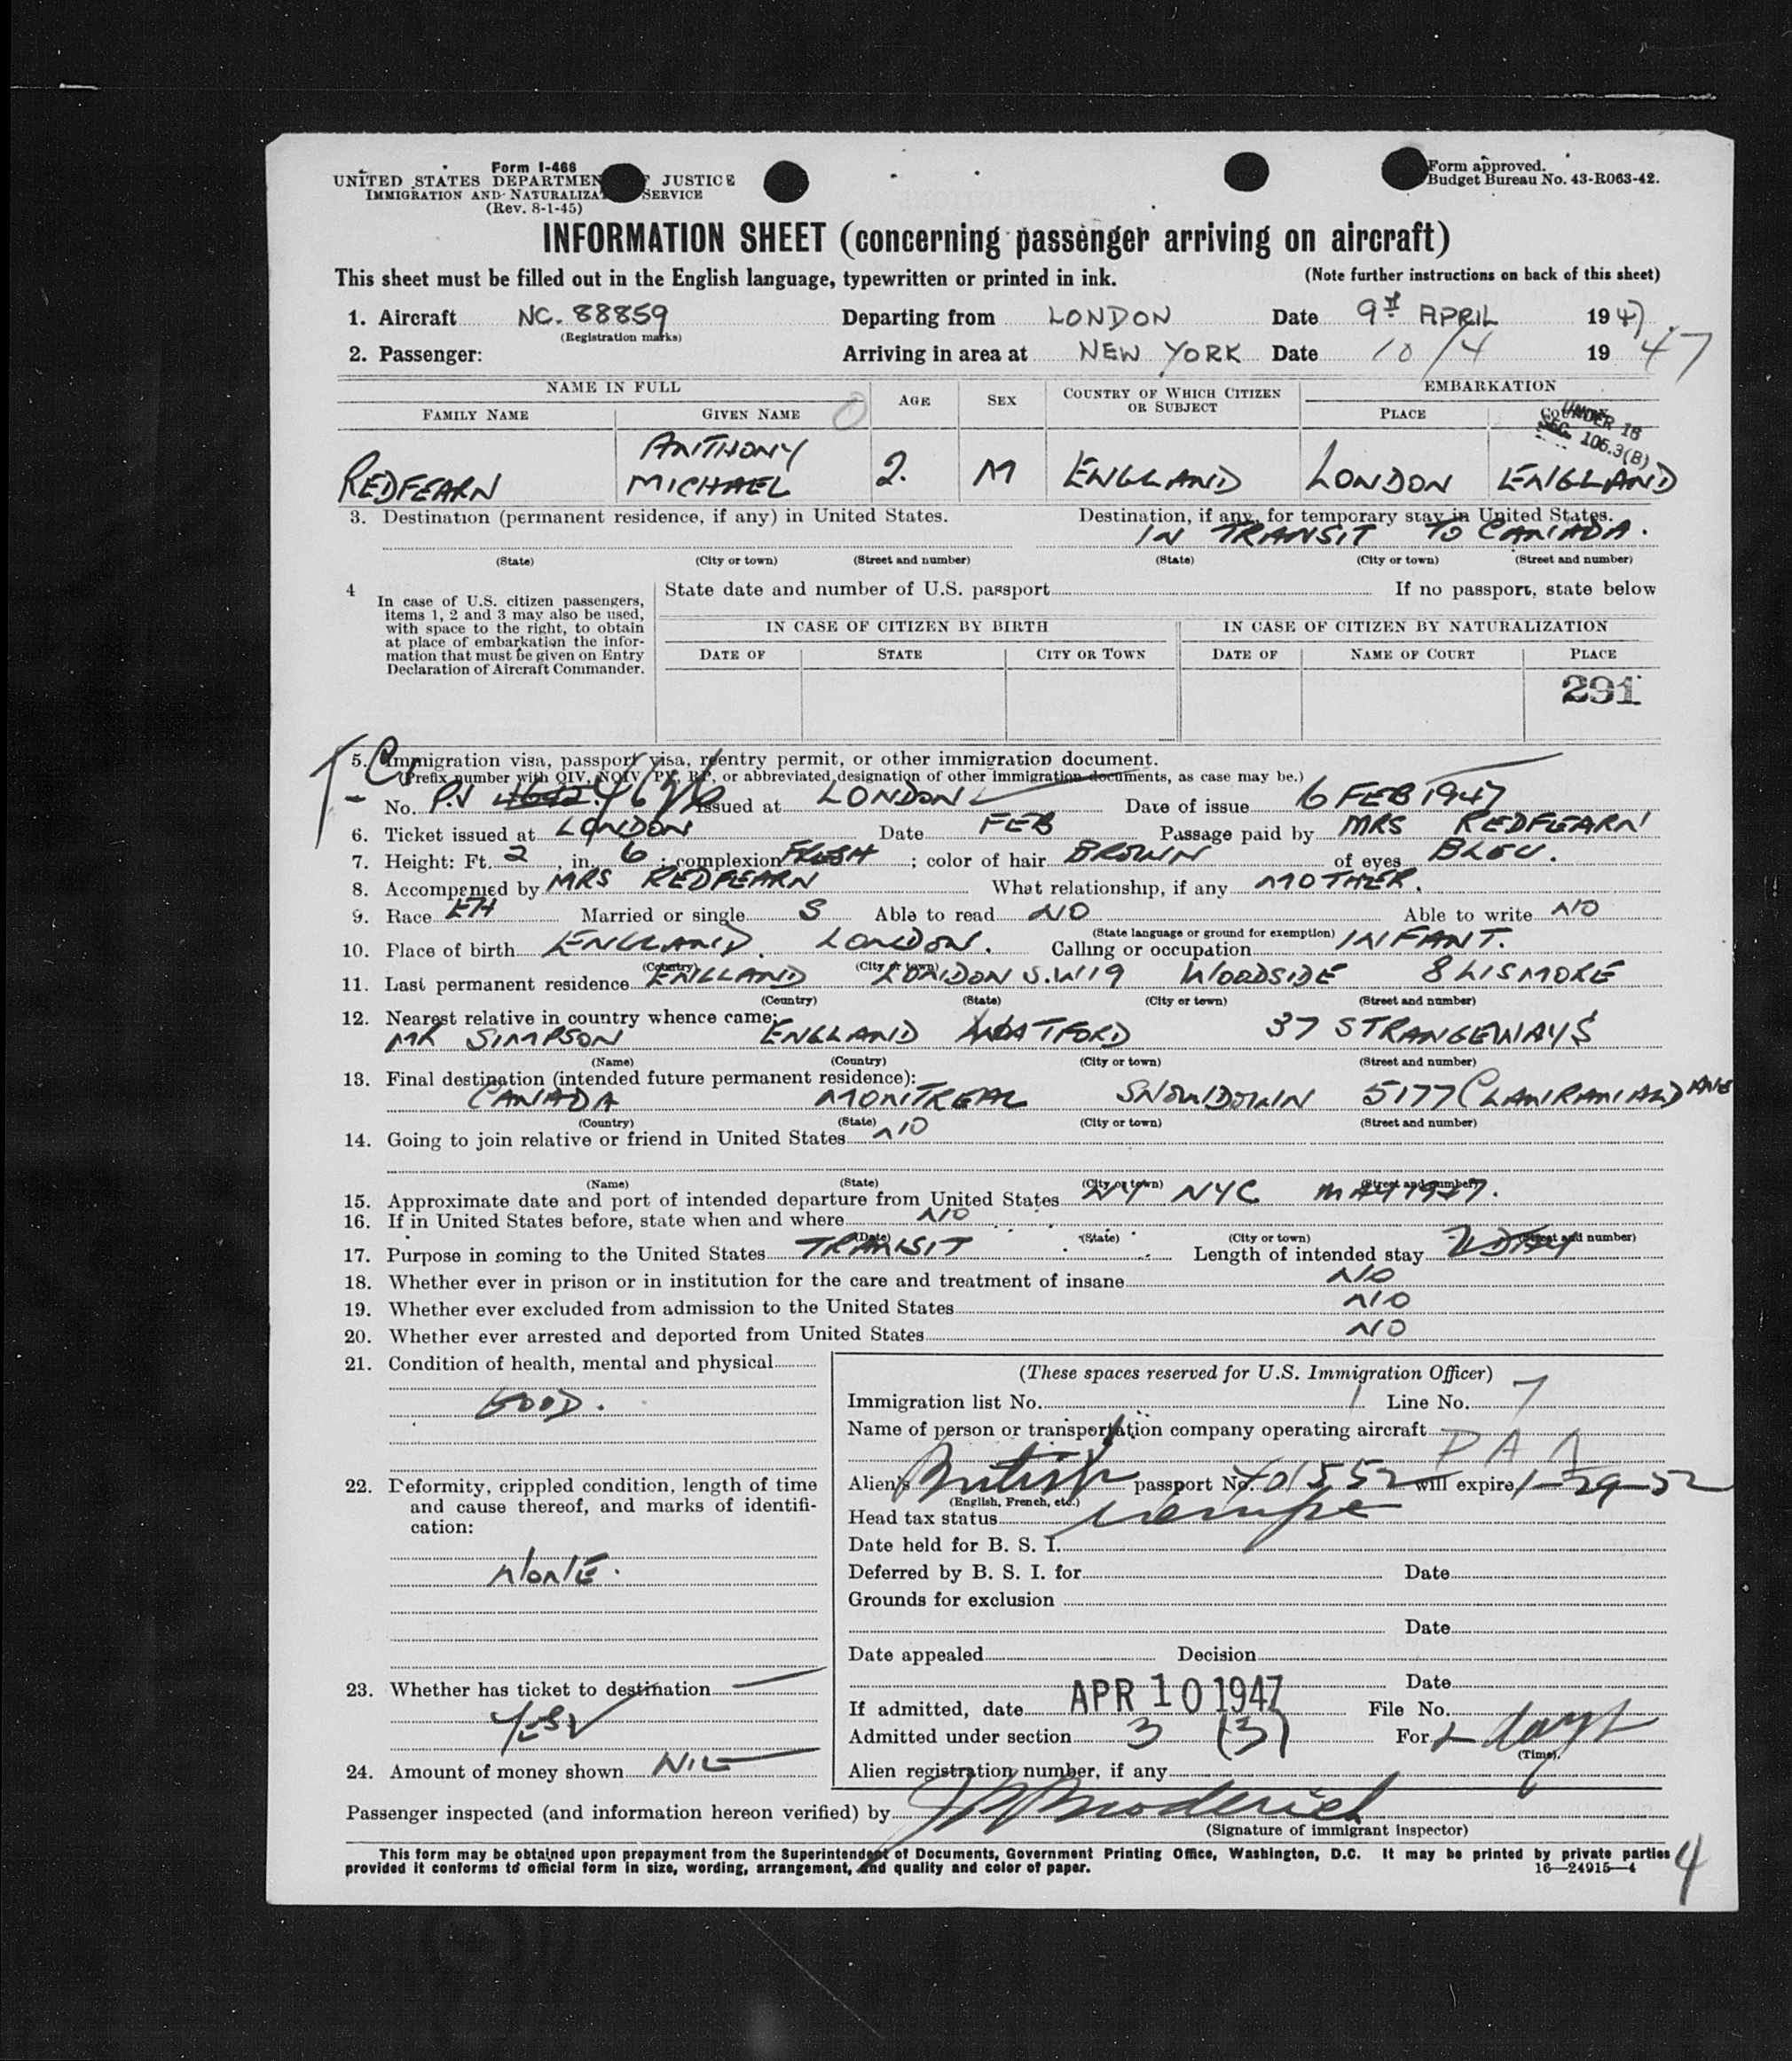 Form I-466
UNITED STATES DEPARTMENT OF JUSTICE
IMMIGRATION AND NATURALIZATION SERVICE
(Rev. 8-1-45)
Form approved.
Budget Bureau No. 43-R063-42.
INFORMATION SHEET (concerning passenger arriving on aircraft)
This sheet must be filled out in the English language, typewritten or printed in ink. (Note further instructions on back of this sheet)
1. Aircraft NC. 88859 Departing from LONDON Date 9th APRIL 1947.
(Registration marks)
2. Passenger: Arriving in area at NEW YORK Date 10/4 1947
NAME IN FULL AGE SEX COUNTRY OF WHICH CITIZEN OR SUBJECT EMBARKATION
FAMILY NAME GIVEN NAME PLACE COUNTRY
UNDER 16
SEC. 105.3(B)
REDFEARN ANTHONY MICHAEL 2. M ENGLAND LONDON ENGLAND
3. Destination (permanent residence, if any) in United States. Destination, if any, for temporary stay in United States.
IN TRANSIT TO CANADA.
(State) (City or town) (Street and number) (State) (City or town) (Street and number)
4 In case of U.S. citizen passengers, items 1, 2 and 3 may also be used, with space to the right, to obtain at place of embarkation the information that must be given on Entry Declaration of Aircraft Commander.
State date and number of U.S. passport If no passport, state below
IN CASE OF CITIZEN BY BIRTH IN CASE OF CITIZEN BY NATURALIZATION
DATE OF STATE CITY OR TOWN DATE OF NAME OF COURT PLACE
291
5. Immigration visa, passport visa, reentry permit, or other immigration document.
(Prefix number with QIV, NQIV, PV, RP, or abbreviated designation of other immigration documents, as case may be.)
No. P.V Issued at LONDON Date of issue 6 FEB 1947
6. Ticket issued at LONDON Date FEB Passage paid by MRS REDFEARN
7. Height: Ft. 2, in. 6; complexion FRESH; color of hair BROWN of eyes BLEU.
8. Accompanied by MRS REDFEARN What relationship, if any MOTHER.
9. Race Married or single S Able to read NO Able to write NO
(State language or ground for exemption)
10. Place of birth ENGLAND. LONDON. Calling or occupation INFANT.
(Country) (City or town)
11. Last permanent residence ENGLAND LONDON S.W19 WOODSIDE 8 LISMORE
(Country) (State) (City or town) (Street and number)
12. Nearest relative in country whence came:
MR SIMPSON ENGLAND WATFORD 37 STRANGEWAYS
(Name) (Country) (City or town) (Street and number)
13. Final destination (intended future permanent residence):
CANADA MONTREAL SNOWDOWN 5177 CLANRANALD AVE
(Country) (State) (City or town) (Street and number)
14. Going to join relative or friend in United States NO
(Name) (State) (City or town) (Street and number)
15. Approximate date and port of intended departure from United States NY NYC MAY 1947.
16. If in United States before, state when and where NO
(Date) (State) (City or town) (Street and number)
17. Purpose in coming to the United States TRANSIT Length of intended stay
18. Whether ever in prison or in institution for the care and treatment of insane NO
19. Whether ever excluded from admission to the United States NO
20. Whether ever arrested and deported from United States NO
21. Condition of health, mental and physical
GOOD.
22. Deformity, crippled condition, length of time and cause thereof, and marks of identification:
NONE.
23. Whether has ticket to destination
YES
24. Amount of money shown NIL
(These spaces reserved for U.S. Immigration Officer)
Immigration list No. 1 Line No. 7
Name of person or transportation company operating aircraft
PAA
Alien's British passport No. 401552 will expire 1-29-52
(English, French, etc.)
Head tax status
Date held for B. S. I.
Deferred by B. S. I. for Date
Grounds for exclusion
Date
Date appealed Decision
Date
If admitted, date APR 10 1947 File No.
Admitted under section 3 (3) For 2 days
(Time).
Alien registration number, if any
Passenger inspected (and information hereon verified) by
(Signature of immigrant inspector)
This form may be obtained upon prepayment from the Superintendent of Documents, Government Printing Office, Washington, D.C. It may be printed by private parties
provided it conforms to official form in size, wording, arrangement, and quality and color of paper. 16—24915—4
4